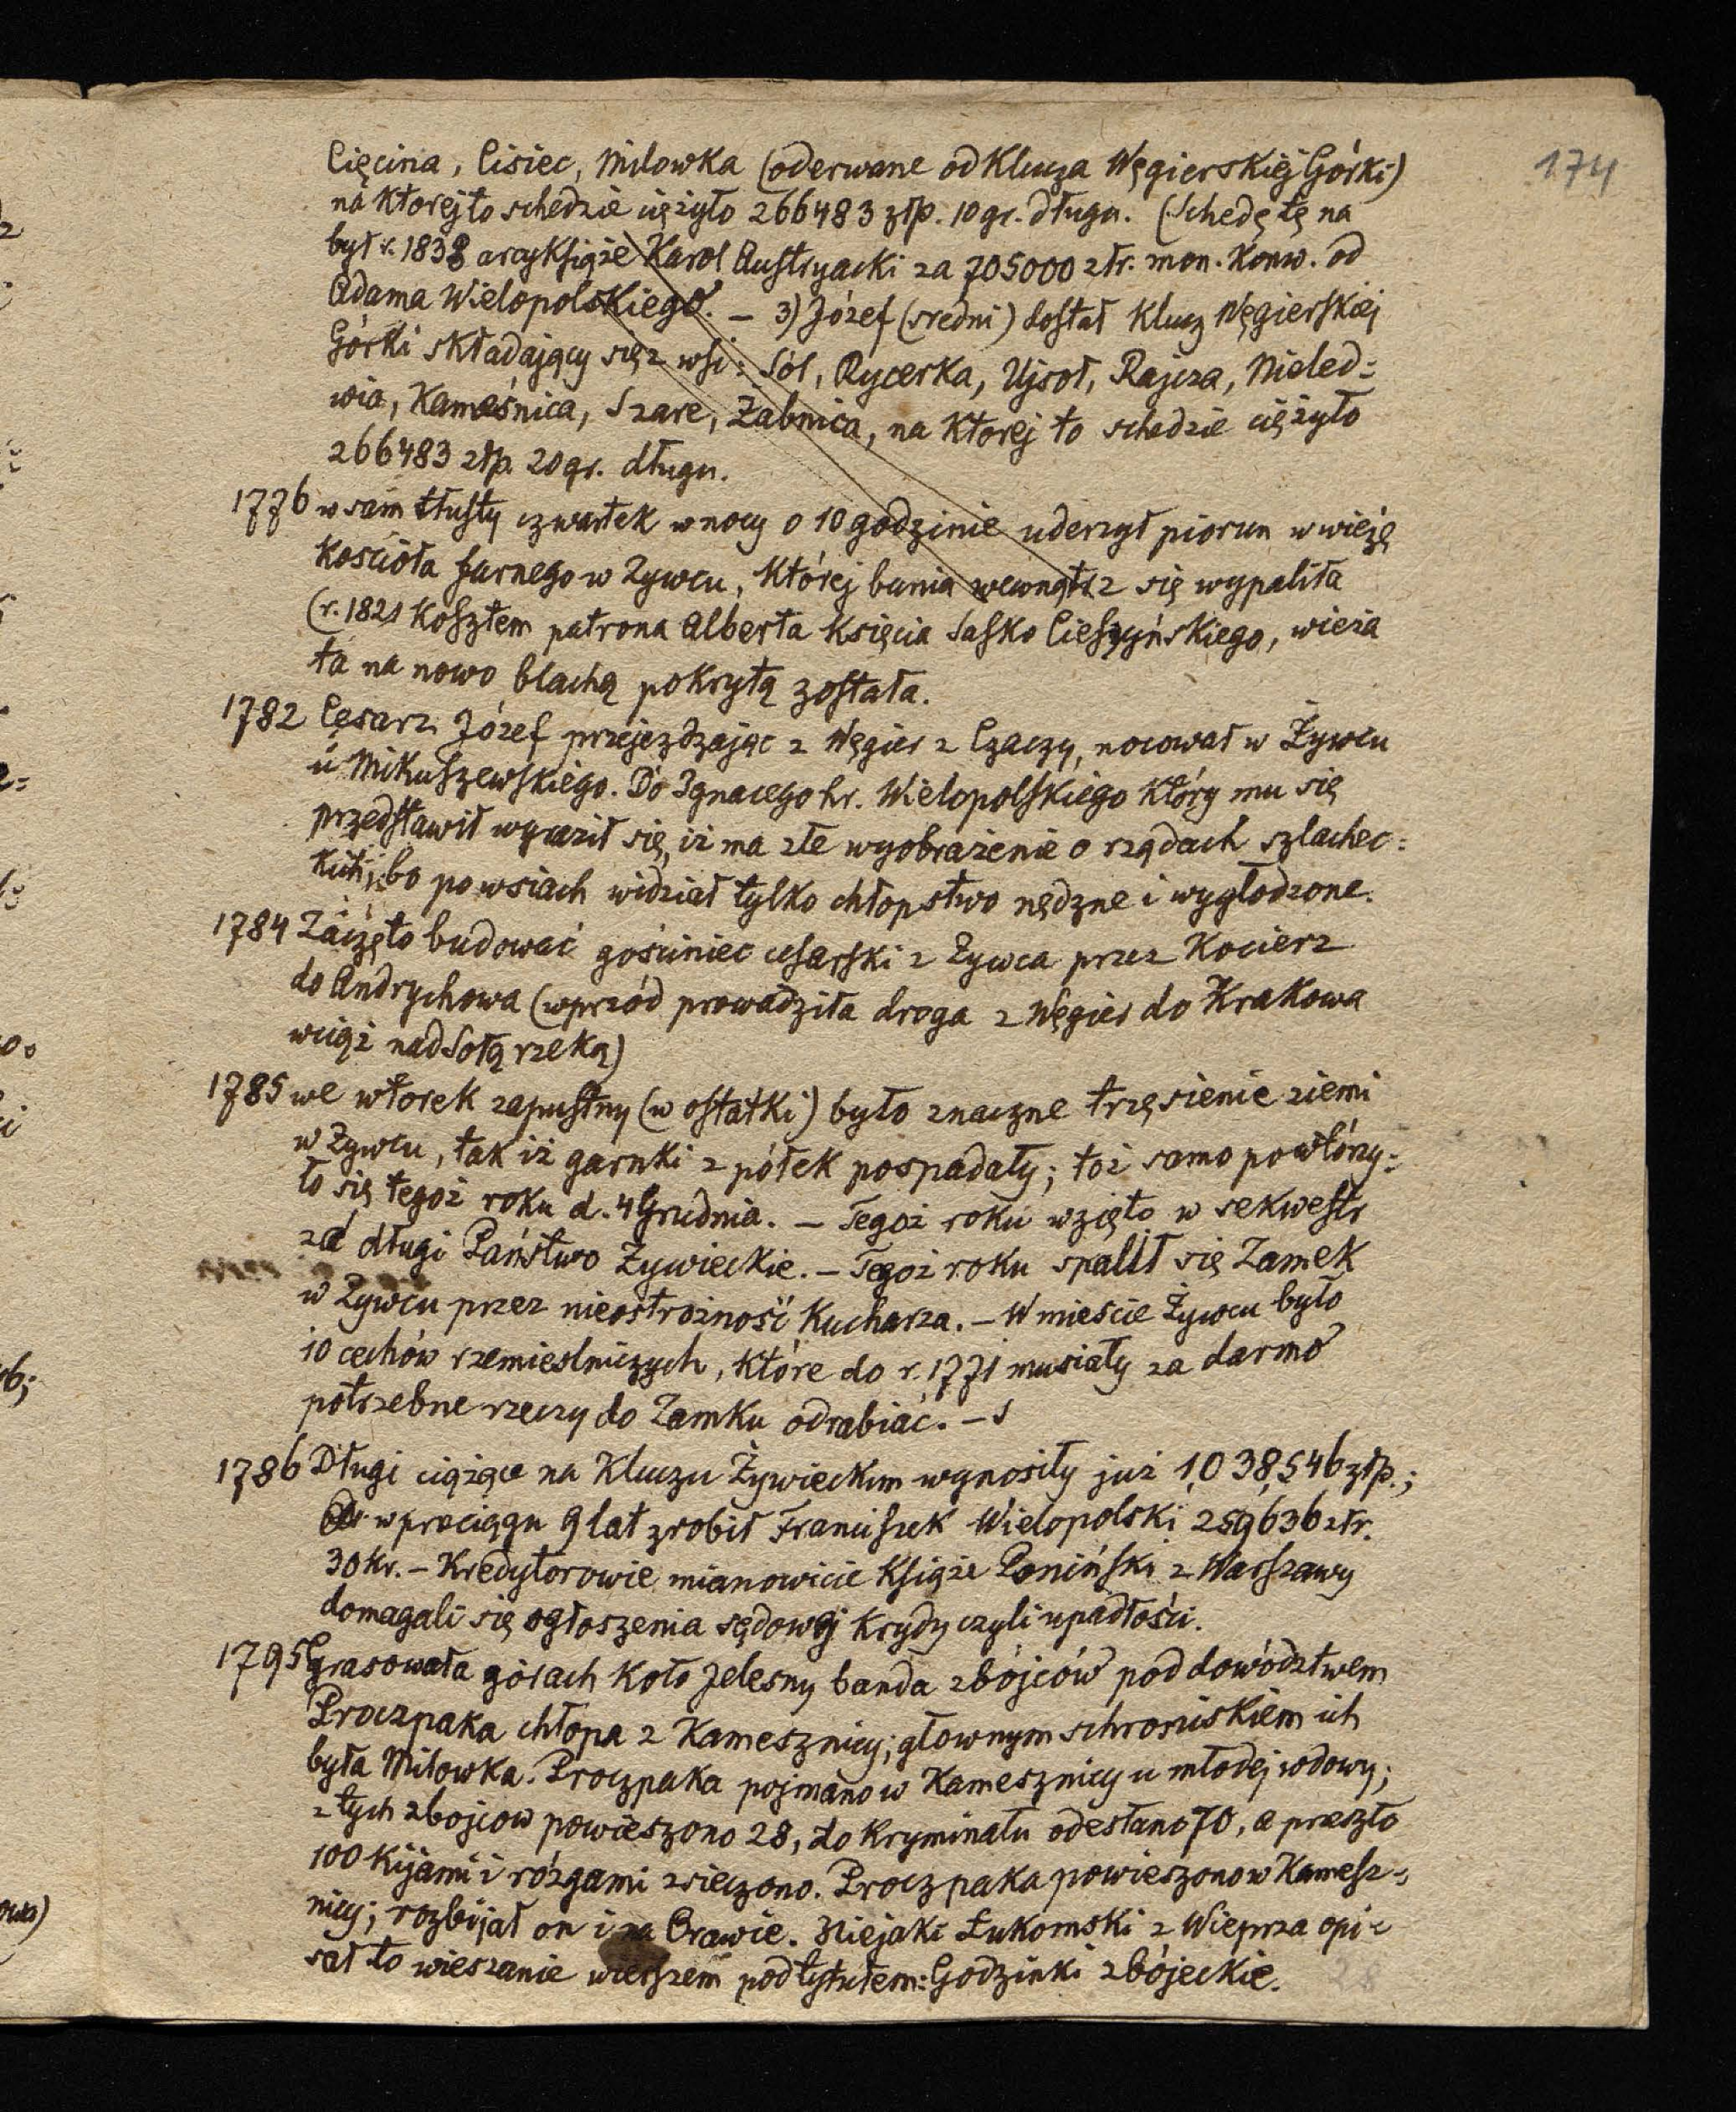 174
Cięcina, Cisiec, Milowka (oderwane od Klucza Węgierskiej Górki)
na ktorej to schedzie ciężyło 266483 złp. 10 gr. długu. (Schedę tę na
był r. 1838 arcyksiąże Karol Austryacki za 705000 złr. mon. konw. od
Adama Wielopolskiego. — 3) Józef (sredni) dostał Klucz Węgierskiej
Górki składający się z wsi: Sól, Rycerka, Ujsoł, Rajcza, Nieled=
wia, Kameśnica, Szare, Żabnica, na ktorej to schedzie ciężyło
266483 złp. 20 gr. długu.
1776 w sam tłusty czwartek w nocy o 10 godzinie uderzył piorun w wieżę
Kościoła farnego w Zywcu, której bania wewnątrz się wypaliła
(r. 1821 kosztem patrona Alberta Księcia Sasko Cieszyńskiego, wieża
ta na nowo blachą pokrytą została.
1782 Cesarz Józef przejezdzając z Węgier z Czaczy, nocował w Żywcu
u Mikuszewskiego. Do Ignacego hr. Wielopolskiego który mu się
przedstawił wyraził się, iż ma złe wyobrażenie o rządach szlachec=
kich; bo po wsiach widział tylko chłopstwo nędzne i wygłodzone.
1784 Zaczęto budować gościniec cesarski z Zywca przez Kocierz
do Andrychowa (wprzód prowadziła droga z Węgier do Krakowa
wciąż nad Sołą rzeką)
1785 we wtorek zapustny (w ostatki) było znaczne trzęsienie ziemi
w Zywcu, tak iż garnki z półek pospadały; toż samo powtórzy=
ło się tegoż roku d. 4 Grudnia. — Tegoż roku wzięto w sekwestr
za długi Państwo Żywieckie. — Tegoż roku spalił się Zamek
w Zywcu przez nieostrożność Kucharza. — W mieście Żywcu było
10 cechów rzemieslniczych, które do r. 1771 musiały za darmo
potrzebne rzeczy do Zamku odrabiać. —
1786 Długi ciążące na Kluczu Żywieckim wynosiły już 1,038,546 złp.;
w przeciągu 9 lat zrobił Franciszek Wielopolski 259636 złr.
30 kr. — Kredytorowie mianowicie Książe Poniński z Warszawy
domagali się ogłoszenia sądowej Krydy czyli upadłości.
1795 Grasowała górach koło Jelesny banda zbójców pod dowództwem
Proczpaka chłopa z Kamesznicy; głownym schroniskiem ich
była Milowka. Proczpaka pojmano w Kamesznicy u młodej wdowy;
z tych zbojcow powieszono 28, do kryminału odesłano 70, a przeszło
100 kijami i rózgami zsieczono. Proczpaka powieszono w Kamesz=
nicy; rozbijał on i na Orawie. Niejaki Łukomski z Wieprza opi=
sał to wieszanie wierszem pod tytułem: Godzinki zbójeckie.
28